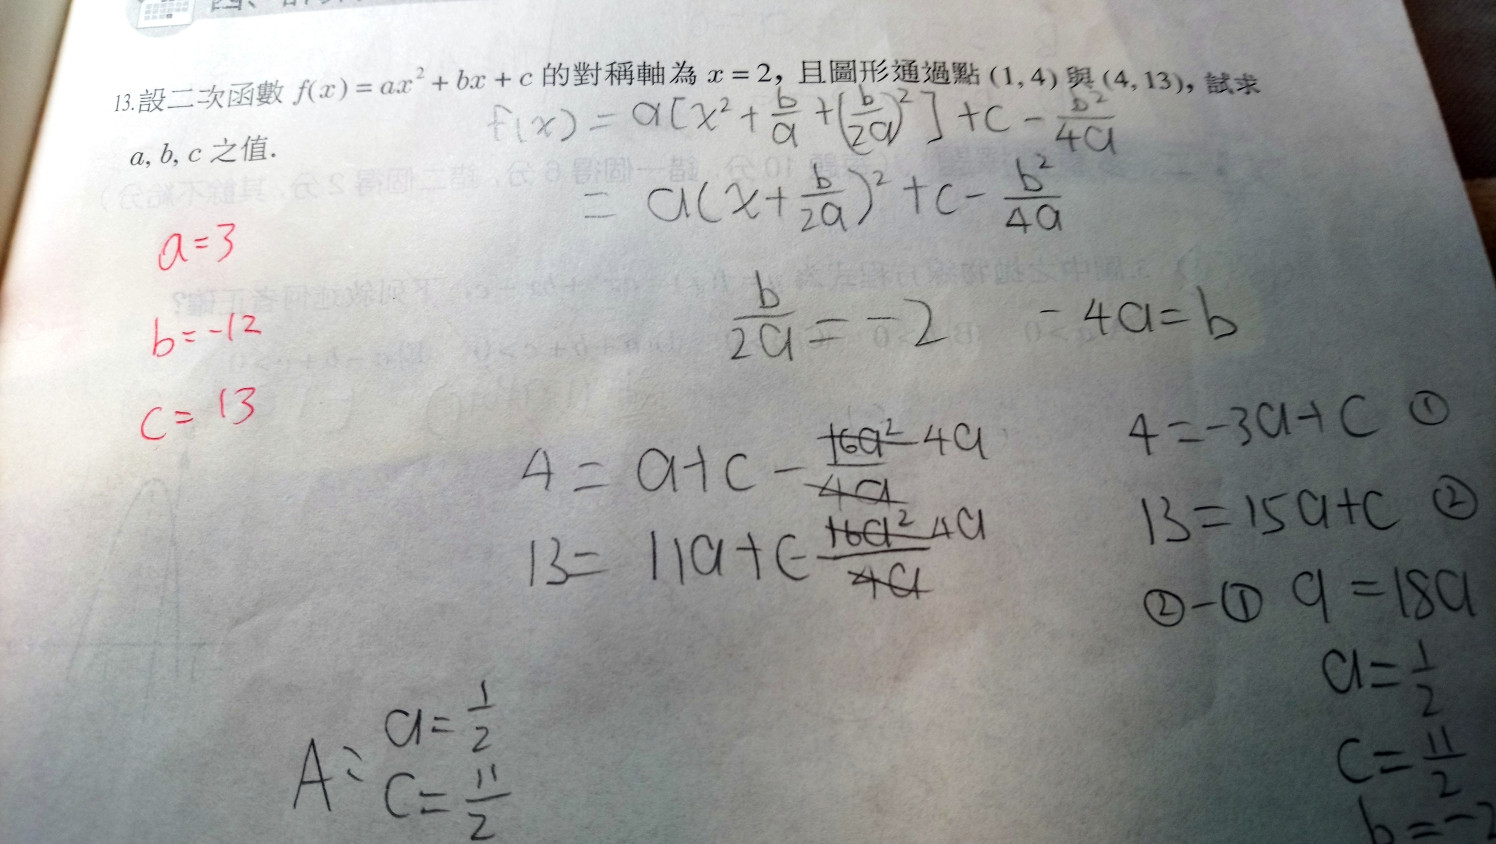 13.設二次函數 f(x) = ax² + bx + c 的對稱軸為 x = 2, 且圖形通過點 (1, 4) 與 (4, 13), 試求
a, b, c 之值.
f(x) = a[x² + b/a + (b/2a)²] + c - b²/4a
= a(x + b/2a)² + c - b²/4a
a=3
b=-12
c=13
b/2a = -2 -4a=b
4 = a+c - 16a²/4a 4a
13 = 11a+c 16a²/4a 4a
4=-3a+c ①
13=15a+c ②
②-① 9=18a
a=1/2
c=11/2
b=-2
A: a=1/2
c=11/2